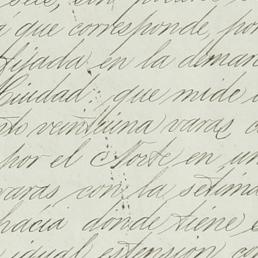 que corresponde, por
fijada en la deman
Ciudad: que mide
to veintiuna varas
por el Norte en un
varas con la sétima
hacia donde tiene
igual estension co